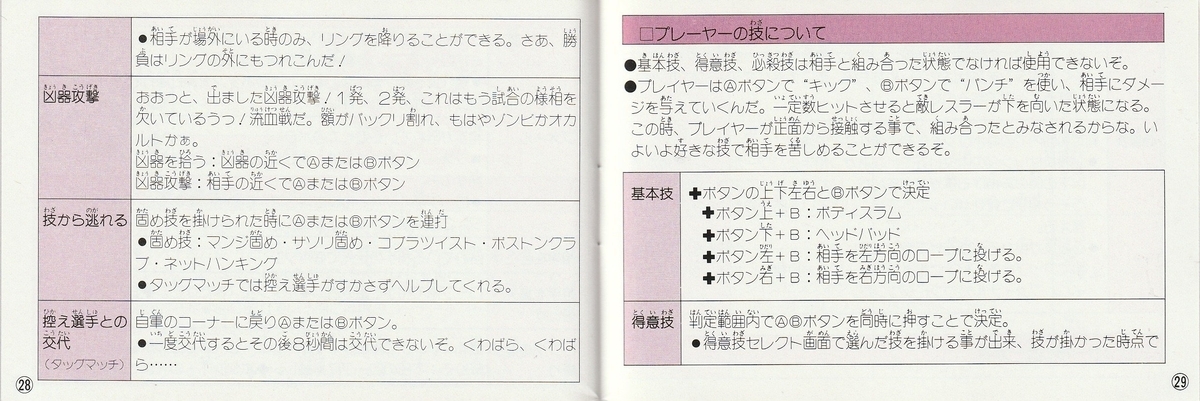 ●相手が場外にいる時のみ、リングを降りることができる。さあ、勝
負はリングの外にもつれこんだ!
凶器攻撃
おおっと、出ました凶器攻撃!1発、2発、これはもう試合の様相を
欠いているうっ!流血戦だ。額がバックリ割れ、もはやゾンビかオカ
ルトかぁ。
凶器を拾う:凶器の近くでⒶまたはⒷボタン
凶器攻撃:相手の近くでⒶまたはⒷボタン
技から逃れる
固め技を掛けられた時にⒶまたはⒷボタンを連打
●固め技:マンジ固め・サソリ固め・コブラツイスト・ボストンクラ
ブ・ネットハンキング
●タッグマッチでは控え選手がすかさずヘルプしてくれる。
控え選手との
交代
(タッグマッチ)
自軍のコーナーに戻りⒶまたはⒷボタン。
●一度交代するとその後8秒間は交代できないぞ。くわばら、くわば
ら……
㉘
□プレーヤーの技について
●基本技、得意技、必殺技は相手と組み合った状態でなければ使用できないぞ。
●プレイヤーはⒶボタンで"キック"、Ⓑボタンで"パンチ"を使い、相手にダメ
ージを与えていくんだ。一定数ヒットさせると敵レスラーが下を向いた状態になる。
この時、プレイヤーが正面から接触する事で、組み合ったとみなされるからな。い
よいよ好きな技で相手を苦しめることができるぞ。
基本技
✚ボタンの上下左右とⒷボタンで決定
✚ボタン上+B:ボディスラム
✚ボタン下+B:ヘッドバッド
✚ボタン左+B:相手を左方向のロープに投げる。
✚ボタン右+B:相手を右方向のロープに投げる。
得意技
判定範囲内でⒶⒷボタンを同時に押すことで決定。
●得意技セレクト画面で選んだ技を掛ける事が出来、技が掛かった時点で
㉙